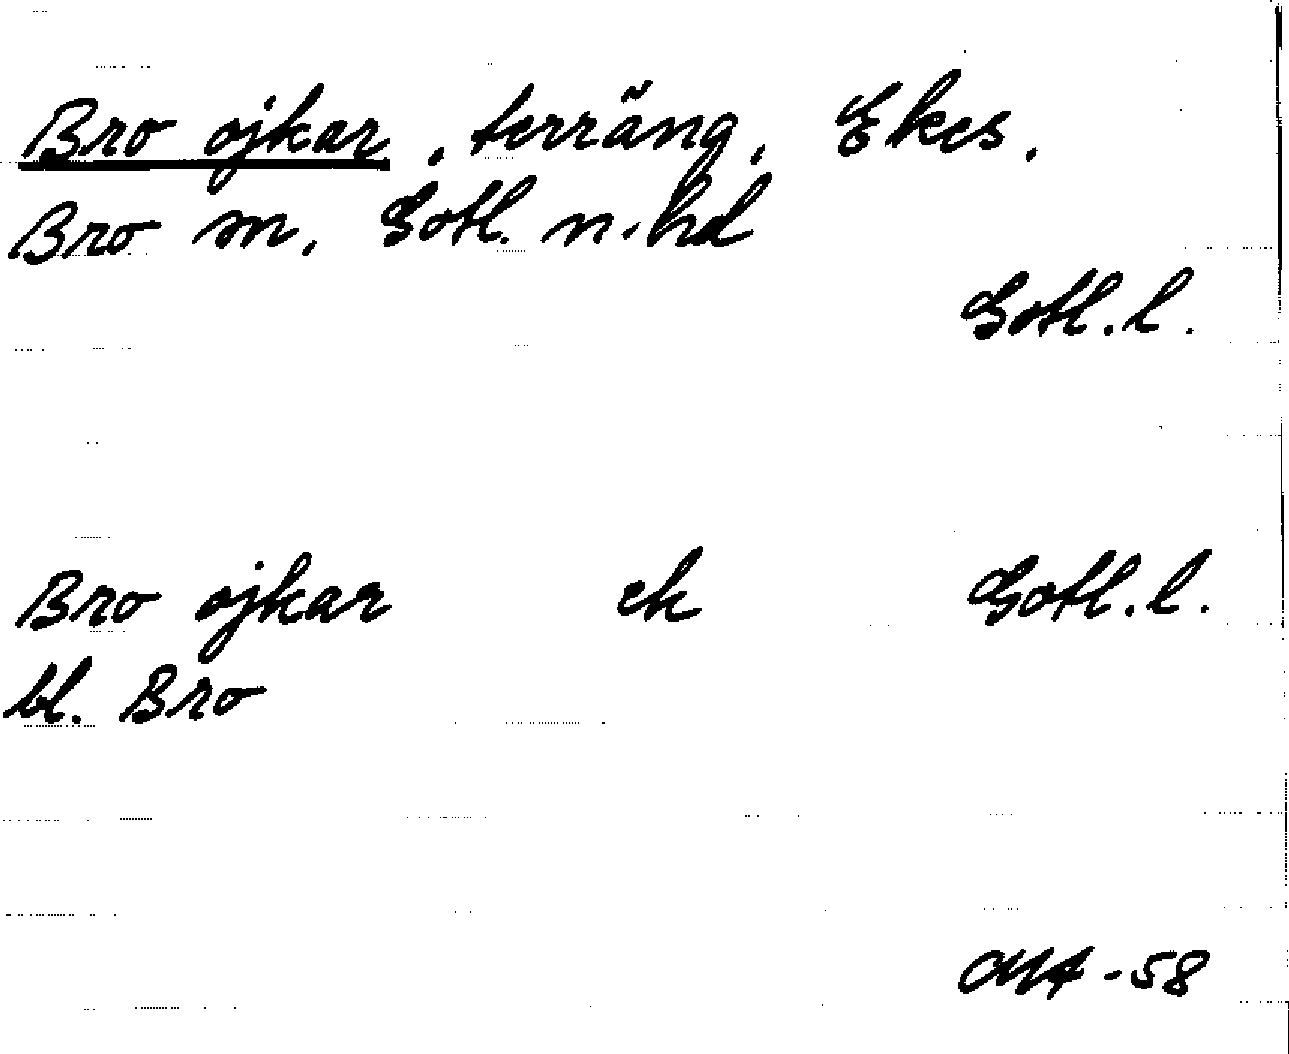 Bro ojkar, terräng, Ekes,
Bro sn, Gotl. n. hd
Gotl. l.
Bro ojkar ek Gotl. l.
bl. Bro
-58